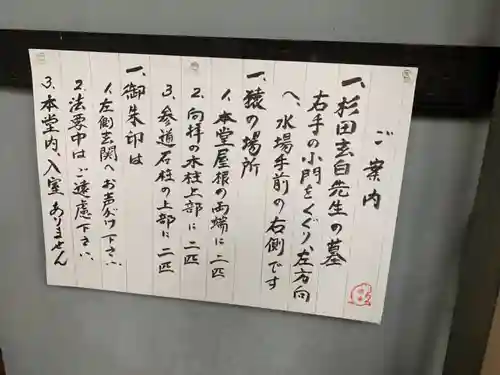 ご案内
一、杉田玄白先生の墓
右手の小門をくぐり、左方向
へ、水場手前の右側です
一、猿の場所
1、本堂屋根の両端に二匹
2、向拝の木柱上部に二匹
3、参道石柱の上部に二匹
一、御朱印は
1、左側玄関へお声がけ下さい
2、法要中はご遠慮下さい、
3、本堂内、入室ありません